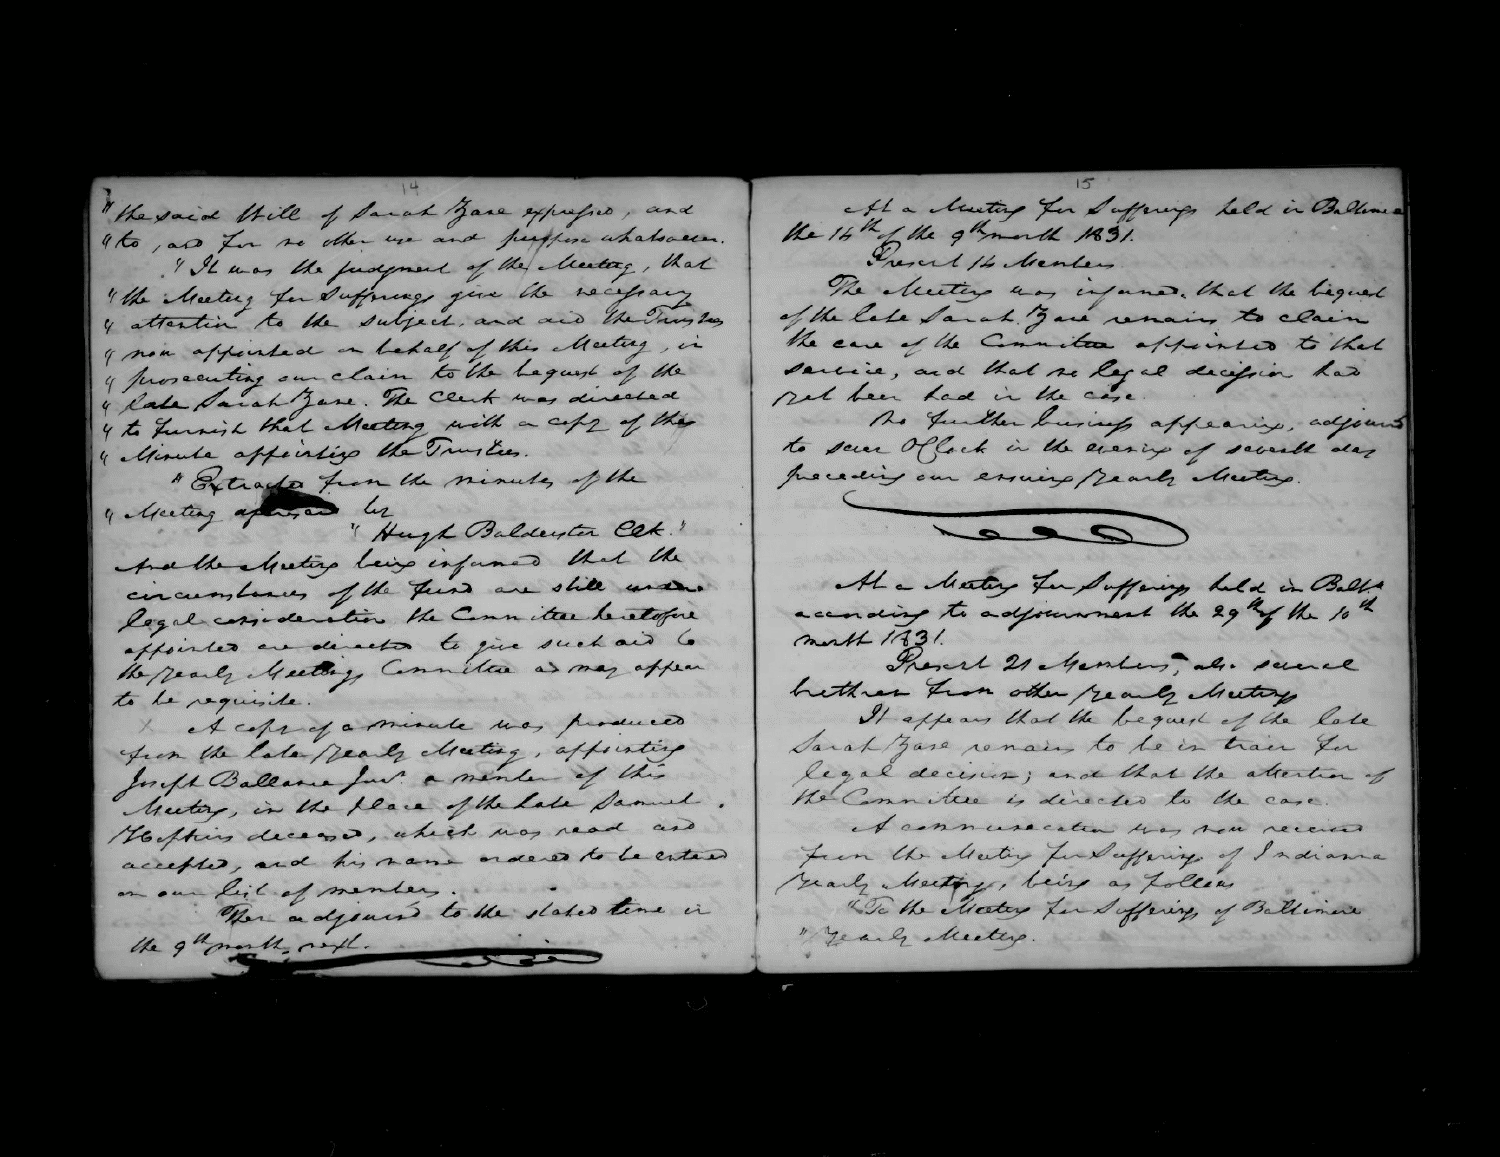 14
" the said Will of Sarah Zane expressed, and
" to, and for no other use and purpose whatsoever.
" It was the judgment of the Meeting, that
" the Meeting for Sufferings give the necessary
" attention to the subject, and aid the Trustees
" now appointed on behalf of this Meeting, in
" prosecuting our claim to the bequest of the
" late Sarah Zane. The Clerk was directed
" to furnish that Meeting with a copy of the
" Minute appointing the Trustees.
" Extracted from the minutes of the
" Meeting aforesaid by
" Hugh Balderston Clk."
And the Meeting being informed that the
circumstances of the fund are still under
legal consideration the Committee heretofore
appointed are directed to give such aid to
the Yearly Meetings Committee as may appear
to be requisite.
X A copy of a minute was produced
from the late Yearly Meeting, appointing
Joseph Ballance Junr. a member of this
Meeting, in the place of the late Samuel
Hopkins deceased, which was read and
accepted, and his name ordered to be entered
on our list of members.
Then adjourned to the stated time in
the 9th month next.
15
At a Meeting for Sufferings held in Baltimore
the 14th of the 9th month 1831.
Present 14 Members
The Meeting was informed, that the bequest
of the late Sarah Zane remains to claim
the care of the Committee appointed to that
service, and that no legal decission had
yet been had in the case.
No further business appearing, adjourned
to seven OClock in the evening of seventh day
preceding our ensuing Yearly Meeting.
At a Meeting for Sufferings held in Balto.
according to adjournment the 29th of the 10th
month 1831.
Present 21 Members, also several
brethren from other Yearly Meetings
It appears that the bequest of the late
Sarah Zane remains to be in train for
legal decision; and that the attention of
the Committee is directed to the case.
A communication was now received
from the Meeting for Sufferings of Indianna
Yearly Meeting, being as follows
"To the Meeting for Sufferings of Baltimore
" Yearly Meeting.